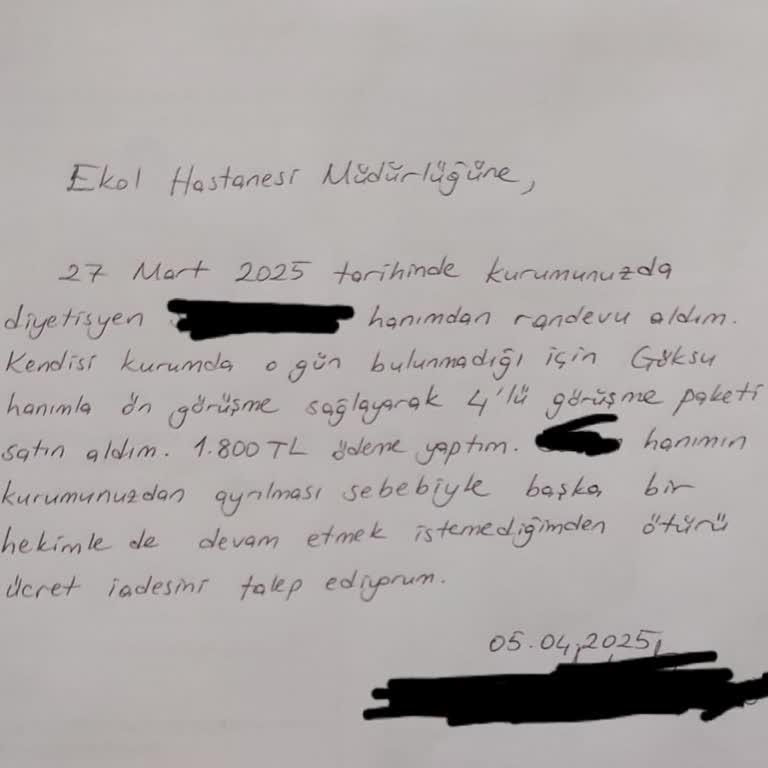 Ekol Hastanesi Müdürlüğüne,
27 Mart 2025 tarihinde kurumunuzda
diyetisyen hanımdan randevu aldım.
Kendisi kurumda o gün bulunmadığı için Göksu
hanımla ön görüşme sağlayarak 4'lü görüşme paketi
satın aldım. 1.800 TL ödeme yaptım. hanımın
kurumunuzdan ayrılması sebebiyle başka bir
hekimle de devam etmek istemediğimden ötürü
ücret iadesini talep ediyorum.
05.04.2025